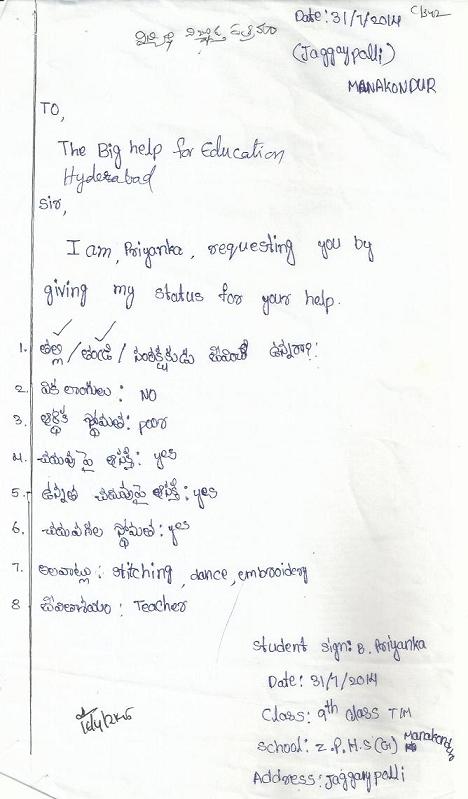 Date: 31/7/2014
(Jaggaypalli)
MANAKONDUR
TO,
The Big help for Education
Hyderabad
Sir,
I am, Priyanka, requesting you by
giving my status for your help.
1. తల్లి / తండ్రి / సంరక్షకుడు జీవించి ఉన్నారా?:
2. వికలాంగులు: NO
3. ఆర్థిక స్థోమత: poor
4. చదువు పై ఆసక్తి: yes
5. ఉన్నత చదువుపై ఆసక్తి: yes
6. చదువగల స్థోమత: yes
7. అలవాట్లు: stitching, dance, embroidery
8 జీవితాశయం: Teacher
Student sign: B. Priyanka
Date: 31/7/2014
Class: 9th class T/M
School: Z.P.H.S (G) Manakondur
Address: Jaggaypalli